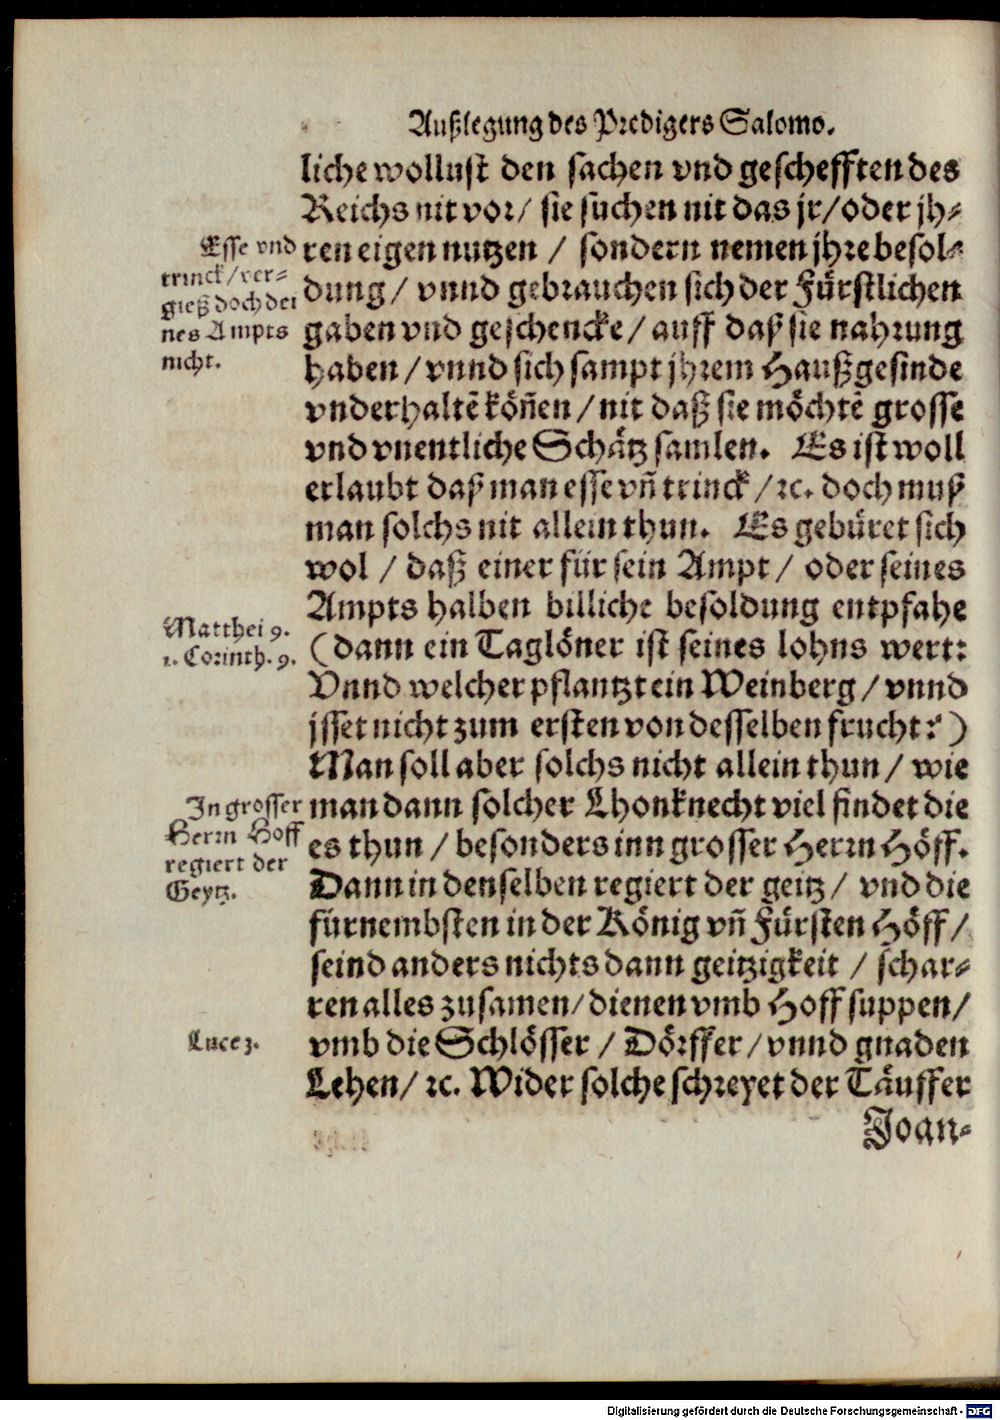 Außlegung des Predigers Salomo.
liche wollust den sachen vnd geschefften des
Reichs nit vor/ sie suchen nit das jr/oder jh⸗
ren eigen nutzen / sondern nemen jhre besol⸗
dung/ vnnd gebrauchen sich der Fürstlichen
gaben vnd geschencke/ auff daß sie nahrung
haben/ vnnd sich sampt jhrem Haußgesinde
vnderhaltẽ köñen/nit daß sie möchtẽ grosse
vnd vnentliche Schätz samlen. Es ist woll
erlaubt daß man esse vñ trinck/ꝛc. doch muß
man solchs nit allein thun. Es gebüret sich
wol / daß einer für sein Ampt/ oder seines
Ampts halben billiche besoldung entpfahe
(dann ein Taglöner ist seines lohns wert:
Vnnd welcher pflantzt ein Weinberg/ vnnd
jsset nicht zum ersten von desselben frucht?)
Man soll aber solchs nicht allein thun/ wie
man dann solcher Lhonknecht viel findet die
es thun/ besonders inn grosser Herrn Höff.
Dann in denselben regiert der geitz/ vnd die
fürnembsten in der König vñ Fürsten Höff/
seind anders nichts dann geitzigkeit / schar⸗
ren alles zusamen/dienen vmb Hoff suppen/
vmb die Schlösser/ Dörffer/vnnd gnaden
Lehen/ ꝛc. Wider solche schreyet der Täuffer
Joan⸗
Esse vnd
trinck/ver⸗
gieß doch dei
nes Ampts
nicht.
Matthei 9.
1. Corinth. 9.
In grosser
Herrn Hoff
regiert der
Geytz.
Luce 3.
Digitalisierung gefördert durch die Deutsche Forschungsgemeinschaft - DFG